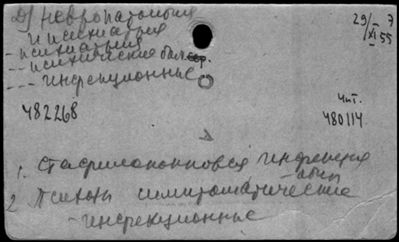 Д) Невропатология
и психиатрия
-- психиатрия
-- психические бол.
--- инфекционные
29/XI 55 7
482268
Чит.
480114
1. Стафилококковая инфекция
2 Психозы симптоматические
- инфекционные